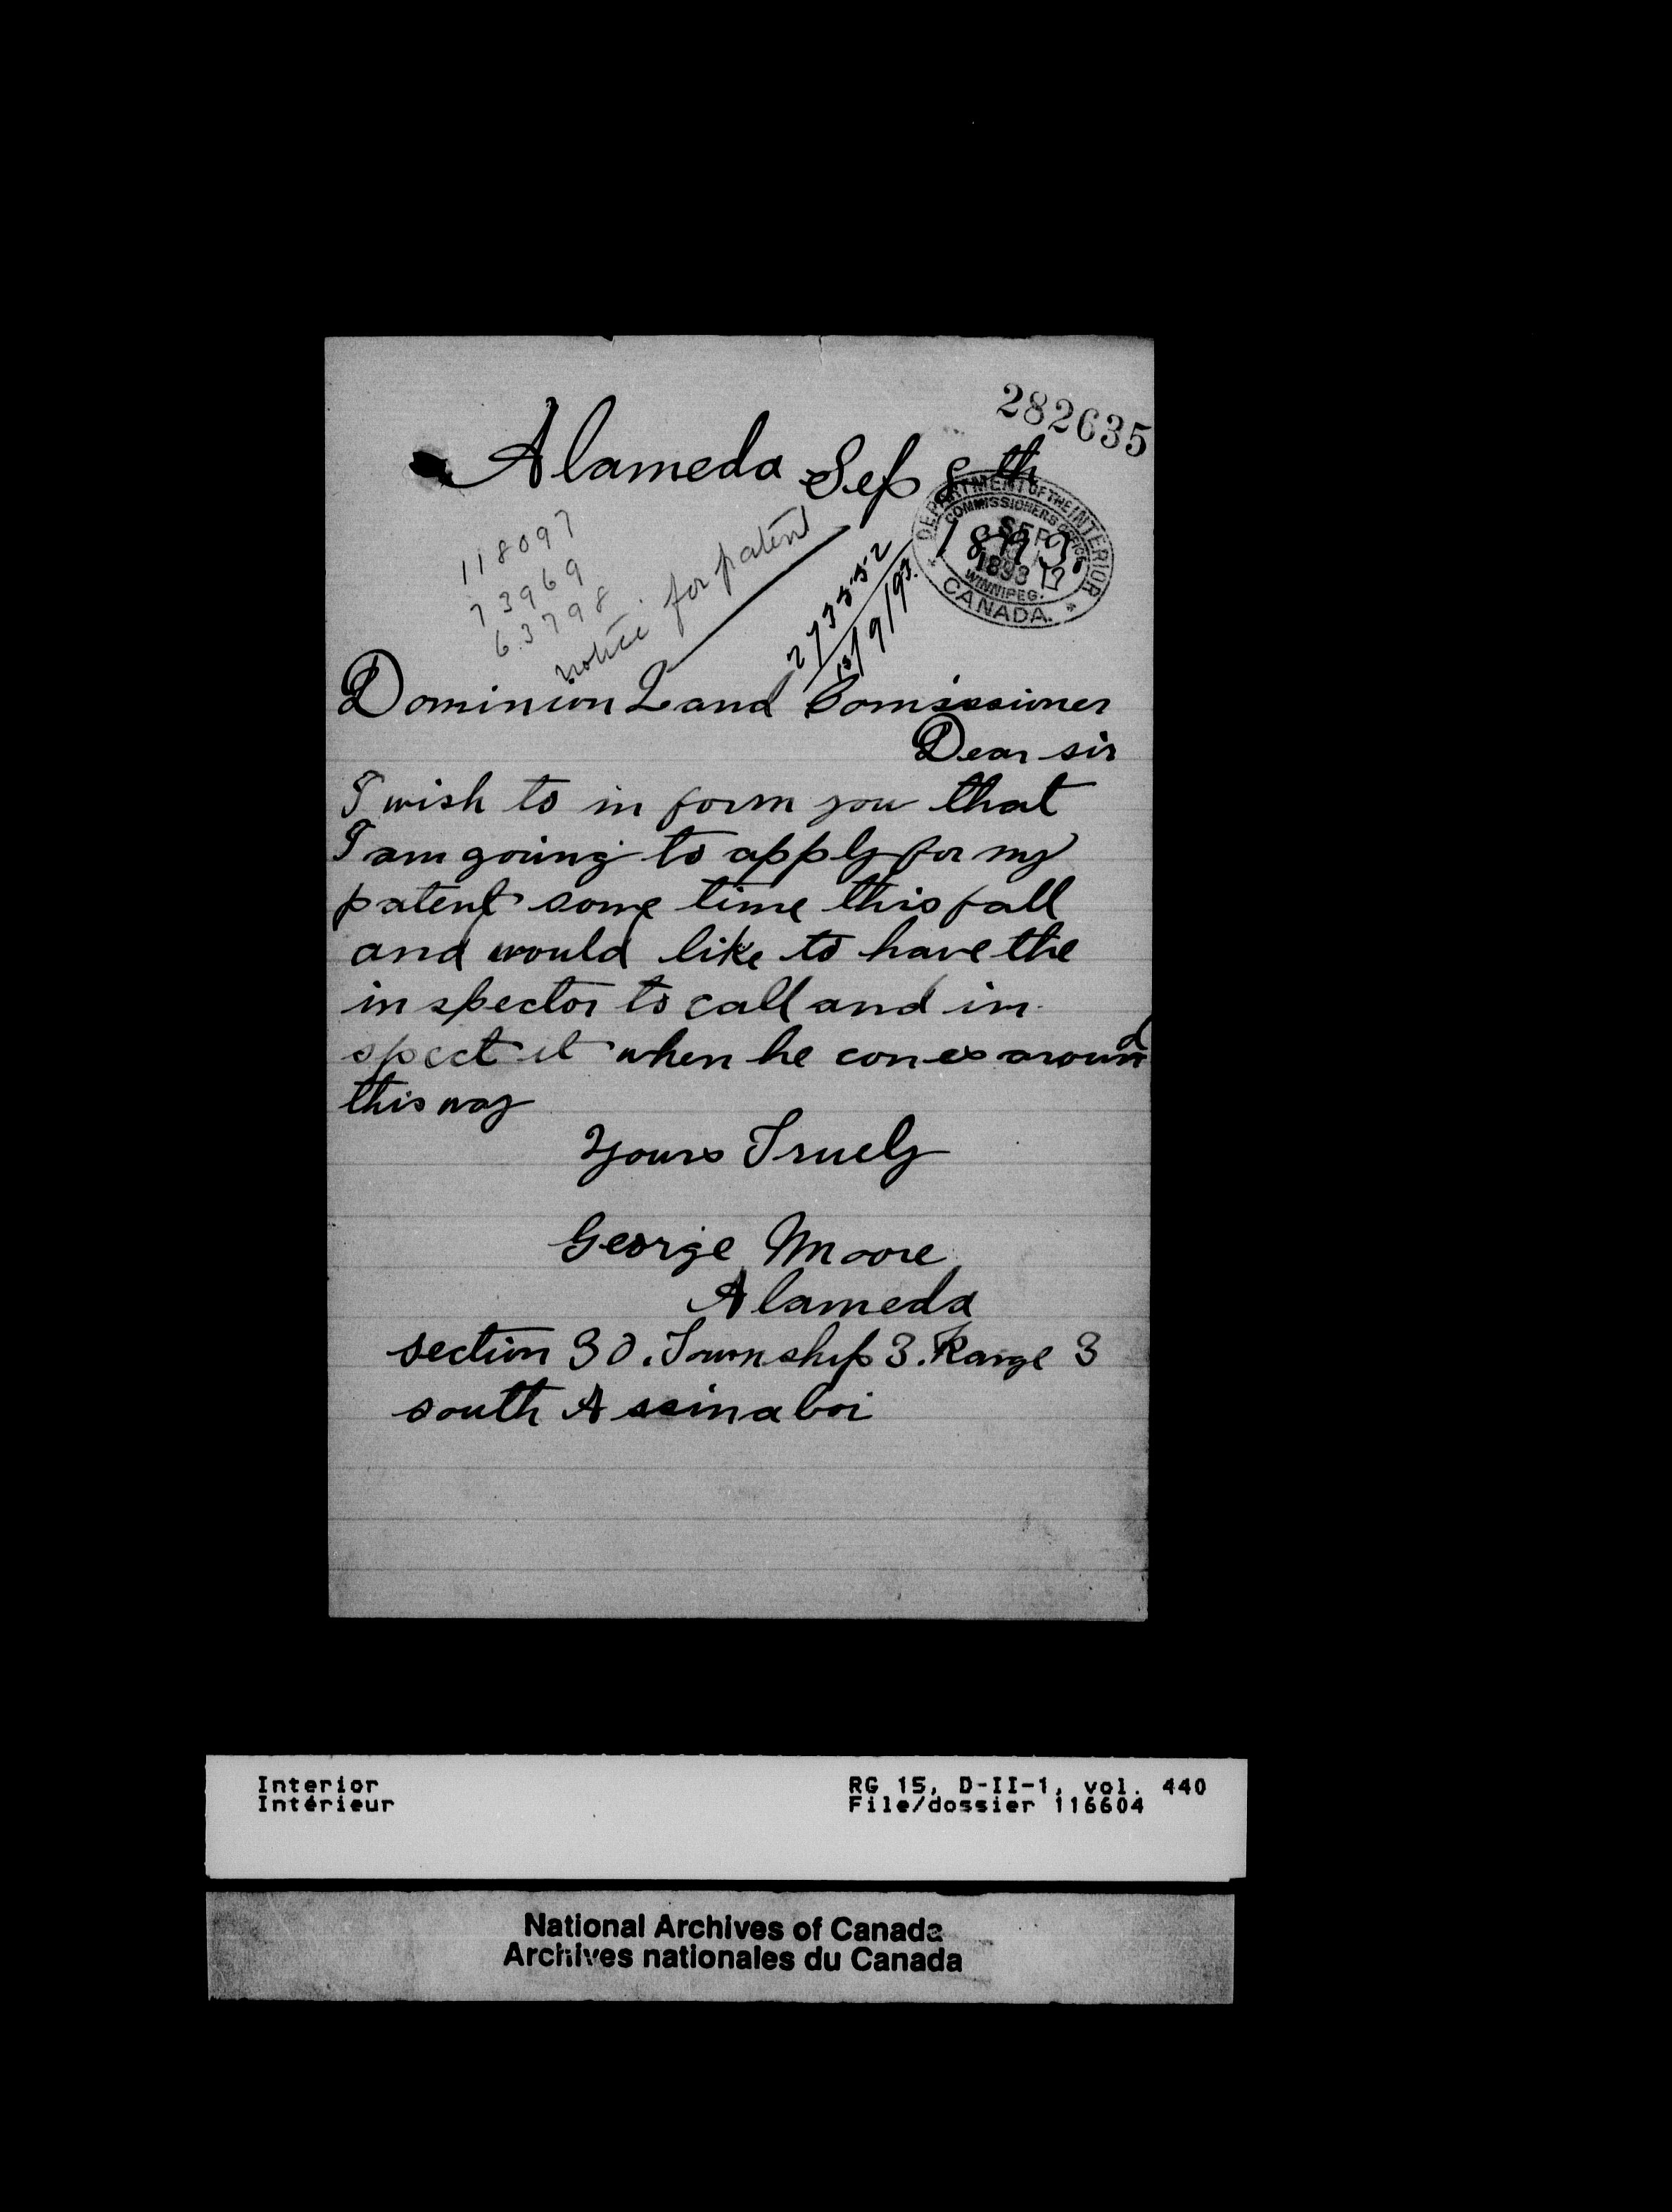 282635
Alameda Sep 8th
1893.
DEPARTMENT OF THE INTERIOR
COMMISSIONERS OFFICE
SEP
1893
WINNIPEG.
CANADA.
118097
73969
63798
notice for patent
273352
13/9/93.
Dominion Land Comissioner
Dear sir
I wish to in form you that
I am going to apply for my
patent some time this fall
and would like to have the
in spector to call and in
spect it when he comes around
this way
Yours Truely
George Moore
Alameda
section 30. Township 3. Range 3
south Assinaboi
Interior
Intérieur
RG 15, D-II-1, vol. 440
File/dossier 116604
National Archives of Canada
Archives nationales du Canada